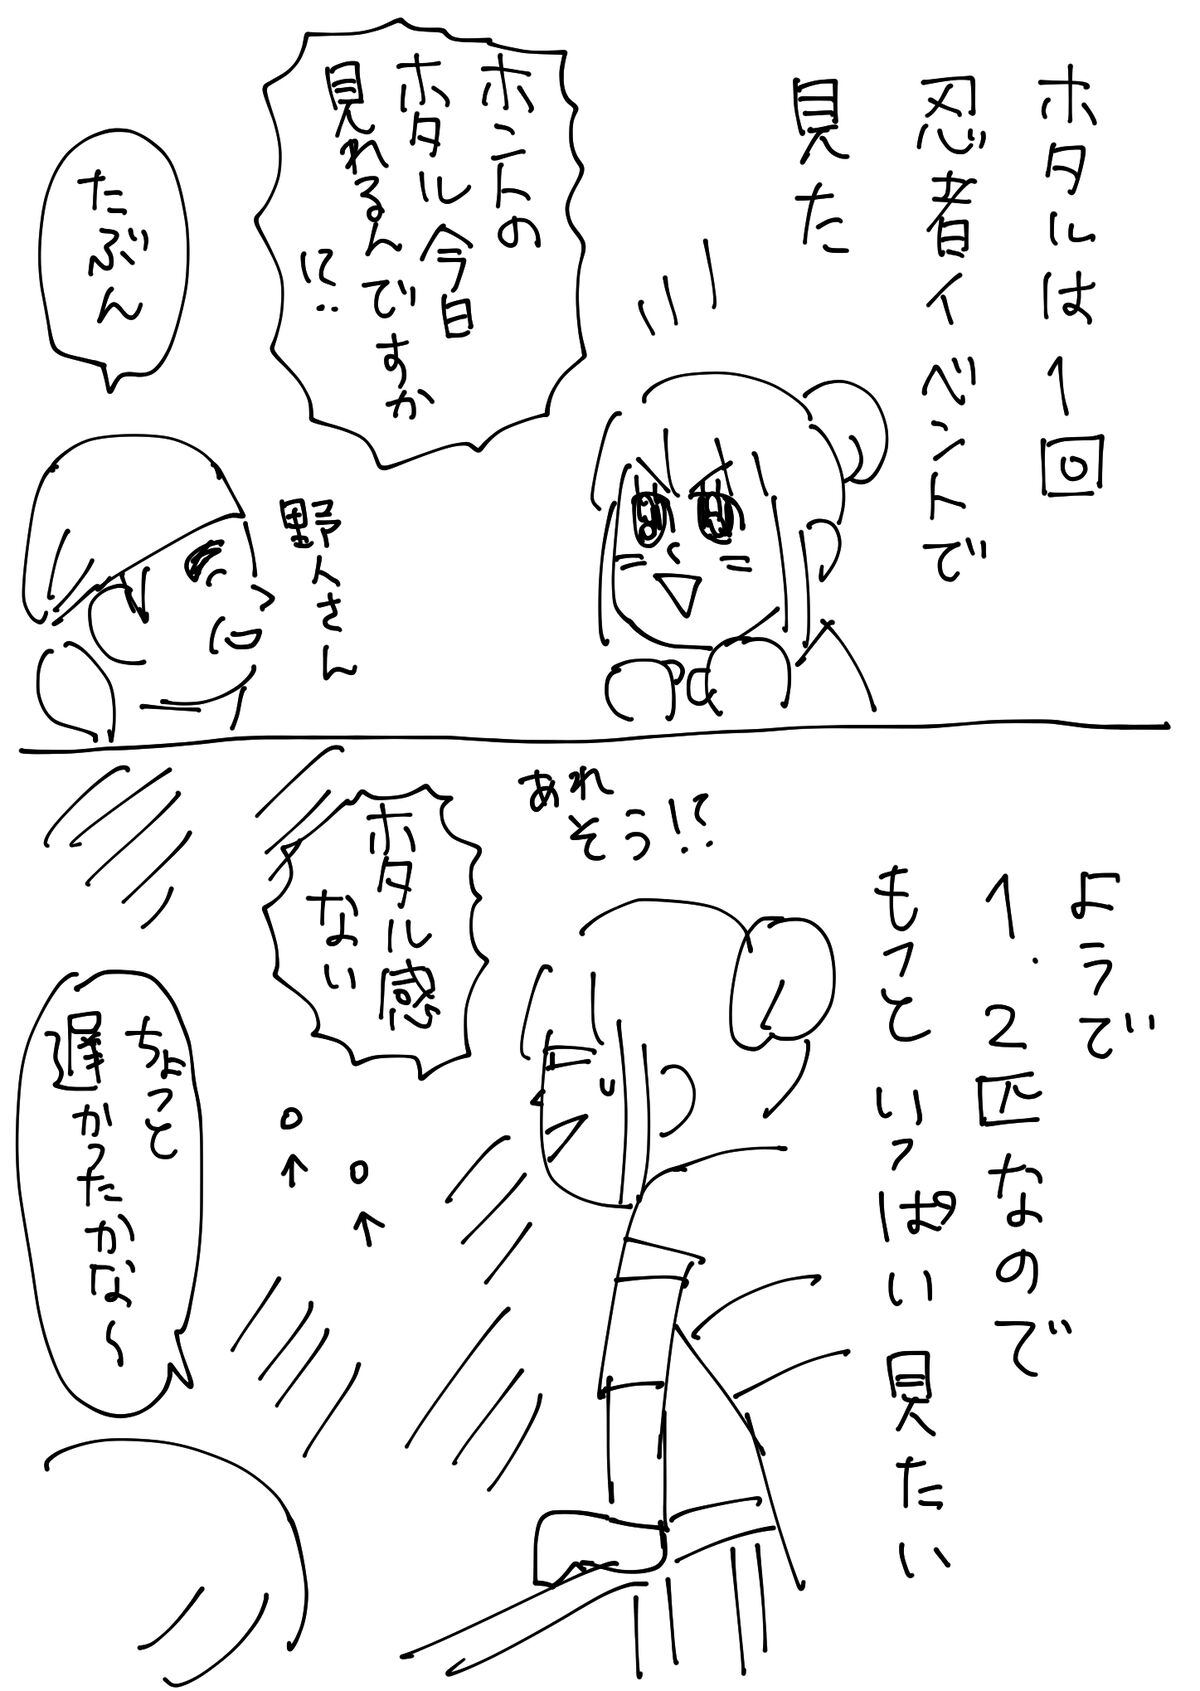 ホタルは1回
忍者イベントで
見た
ホントの
ホタル今日
見れるんですか
!?
たぶん
野人さん
ようで
1.2匹なので
もっといっぱい見たい
あれ
そう!?
ホタル感
ない
ちょっと
遅かったかな〜